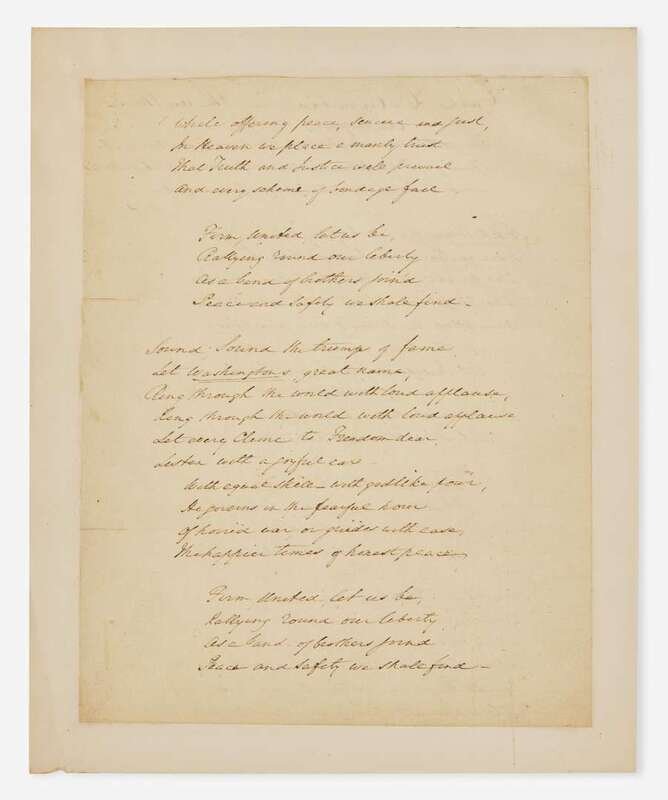 While offering peace, sincere and just,
In Heaven we place a manly trust
That Truth and Justice will prevail
And every scheme of bondage fail
Firm, United let us be,
Rallying round our liberty
As a band of brothers joind
Peace and Safety we shall find –
Sound Sound the trump of fame
Let Washingtons great name,
Ring through the world with loud applause,
Ring through the world with loud applause
Let every Clime to Freedom dear,
Listen with a joyful ear –
With equal skill – with godlike pow'r,
He governs in the fearful hour
Of horrid war or guides with ease,
The happier times of honest peace,
Firm United let us be,
Rallying round our liberty
As a band of brothers joind
Peace and Safety we shall find –